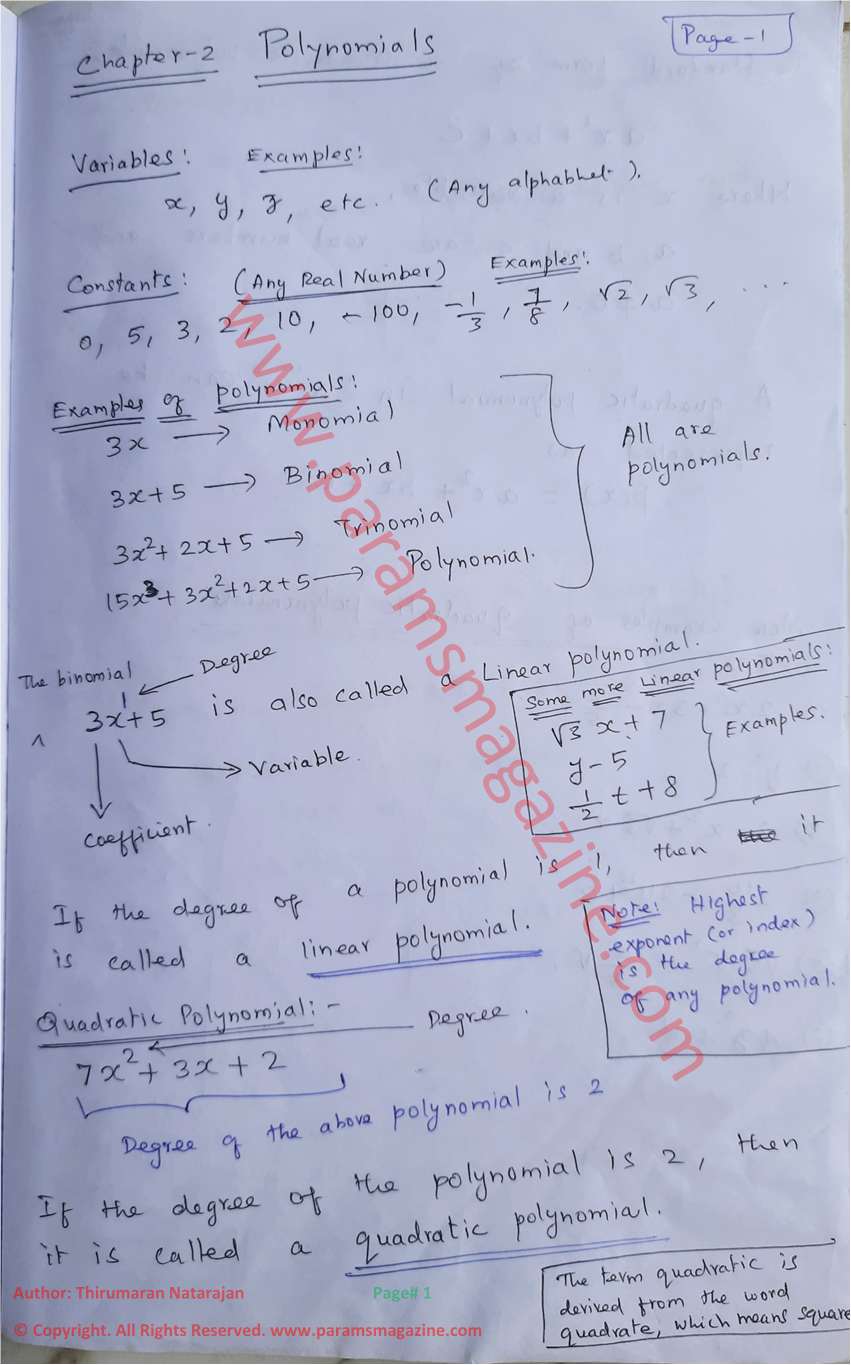 Page-1
Chapter-2 Polynomials
Variables: Examples:
x, y, z, etc. (Any alphabhet).
Constants: (Any Real Number) Examples:
0, 5, 3, 2, 10, -100, -1/3, 7/8, √2, √3, ...
Examples of polynomials:
3x → Monomial
3x+5 → Binomial
3x²+2x+5 → Trinomial
15x³+3x²+2x+5 → Polynomial.
All are
polynomials.
The binomial
Degree
1
3x+5 is also called a Linear polynomial.
Variable.
Coefficient.
Some more Linear polynomials:
√3 x + 7
y-5
1/2 t + 8
Examples.
If the degree of a polynomial is 1, then it
is called a linear polynomial.
Note: Highest
exponent (or index)
is the degree
of any polynomial.
Quadratic Polynomial:-
Degree.
7x²+3x+2
Degree of the above polynomial is 2
If the degree of the polynomial is 2, then
it is called a quadratic polynomial.
The term quadratic is
derived from the word
quadrate, which means square
www.paramsmagazine.com
Author: Thirumaran Natarajan Page# 1
© Copyright. All Rights Reserved. www.paramsmagazine.com